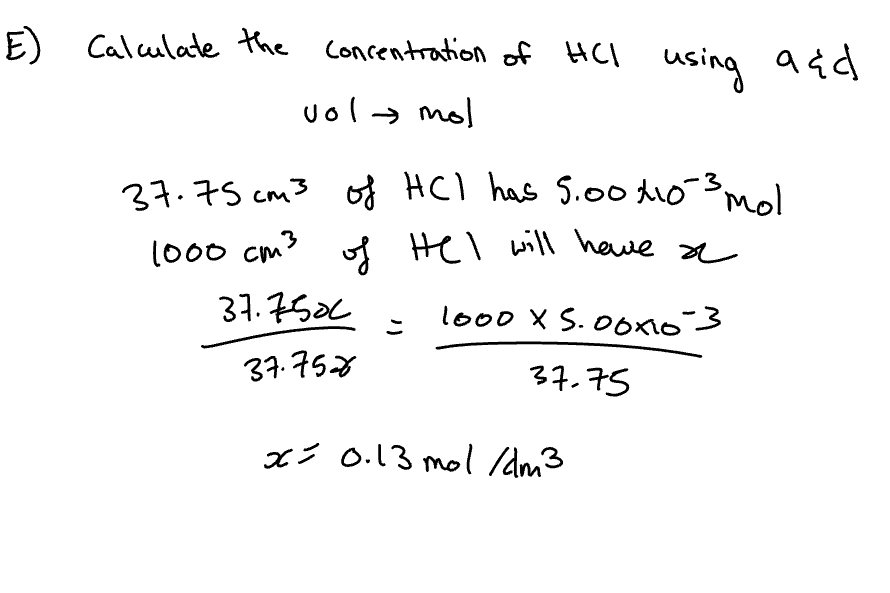 E) Calculate the concentration of HCl using a & d
vol → mol
37.75 cm³ of HCl has 5.00 x10⁻³ mol
1000 cm³ of HCl will have x
37.75x = 1000 x 5.00x10⁻³
37.75x 37.75
x = 0.13 mol /dm³